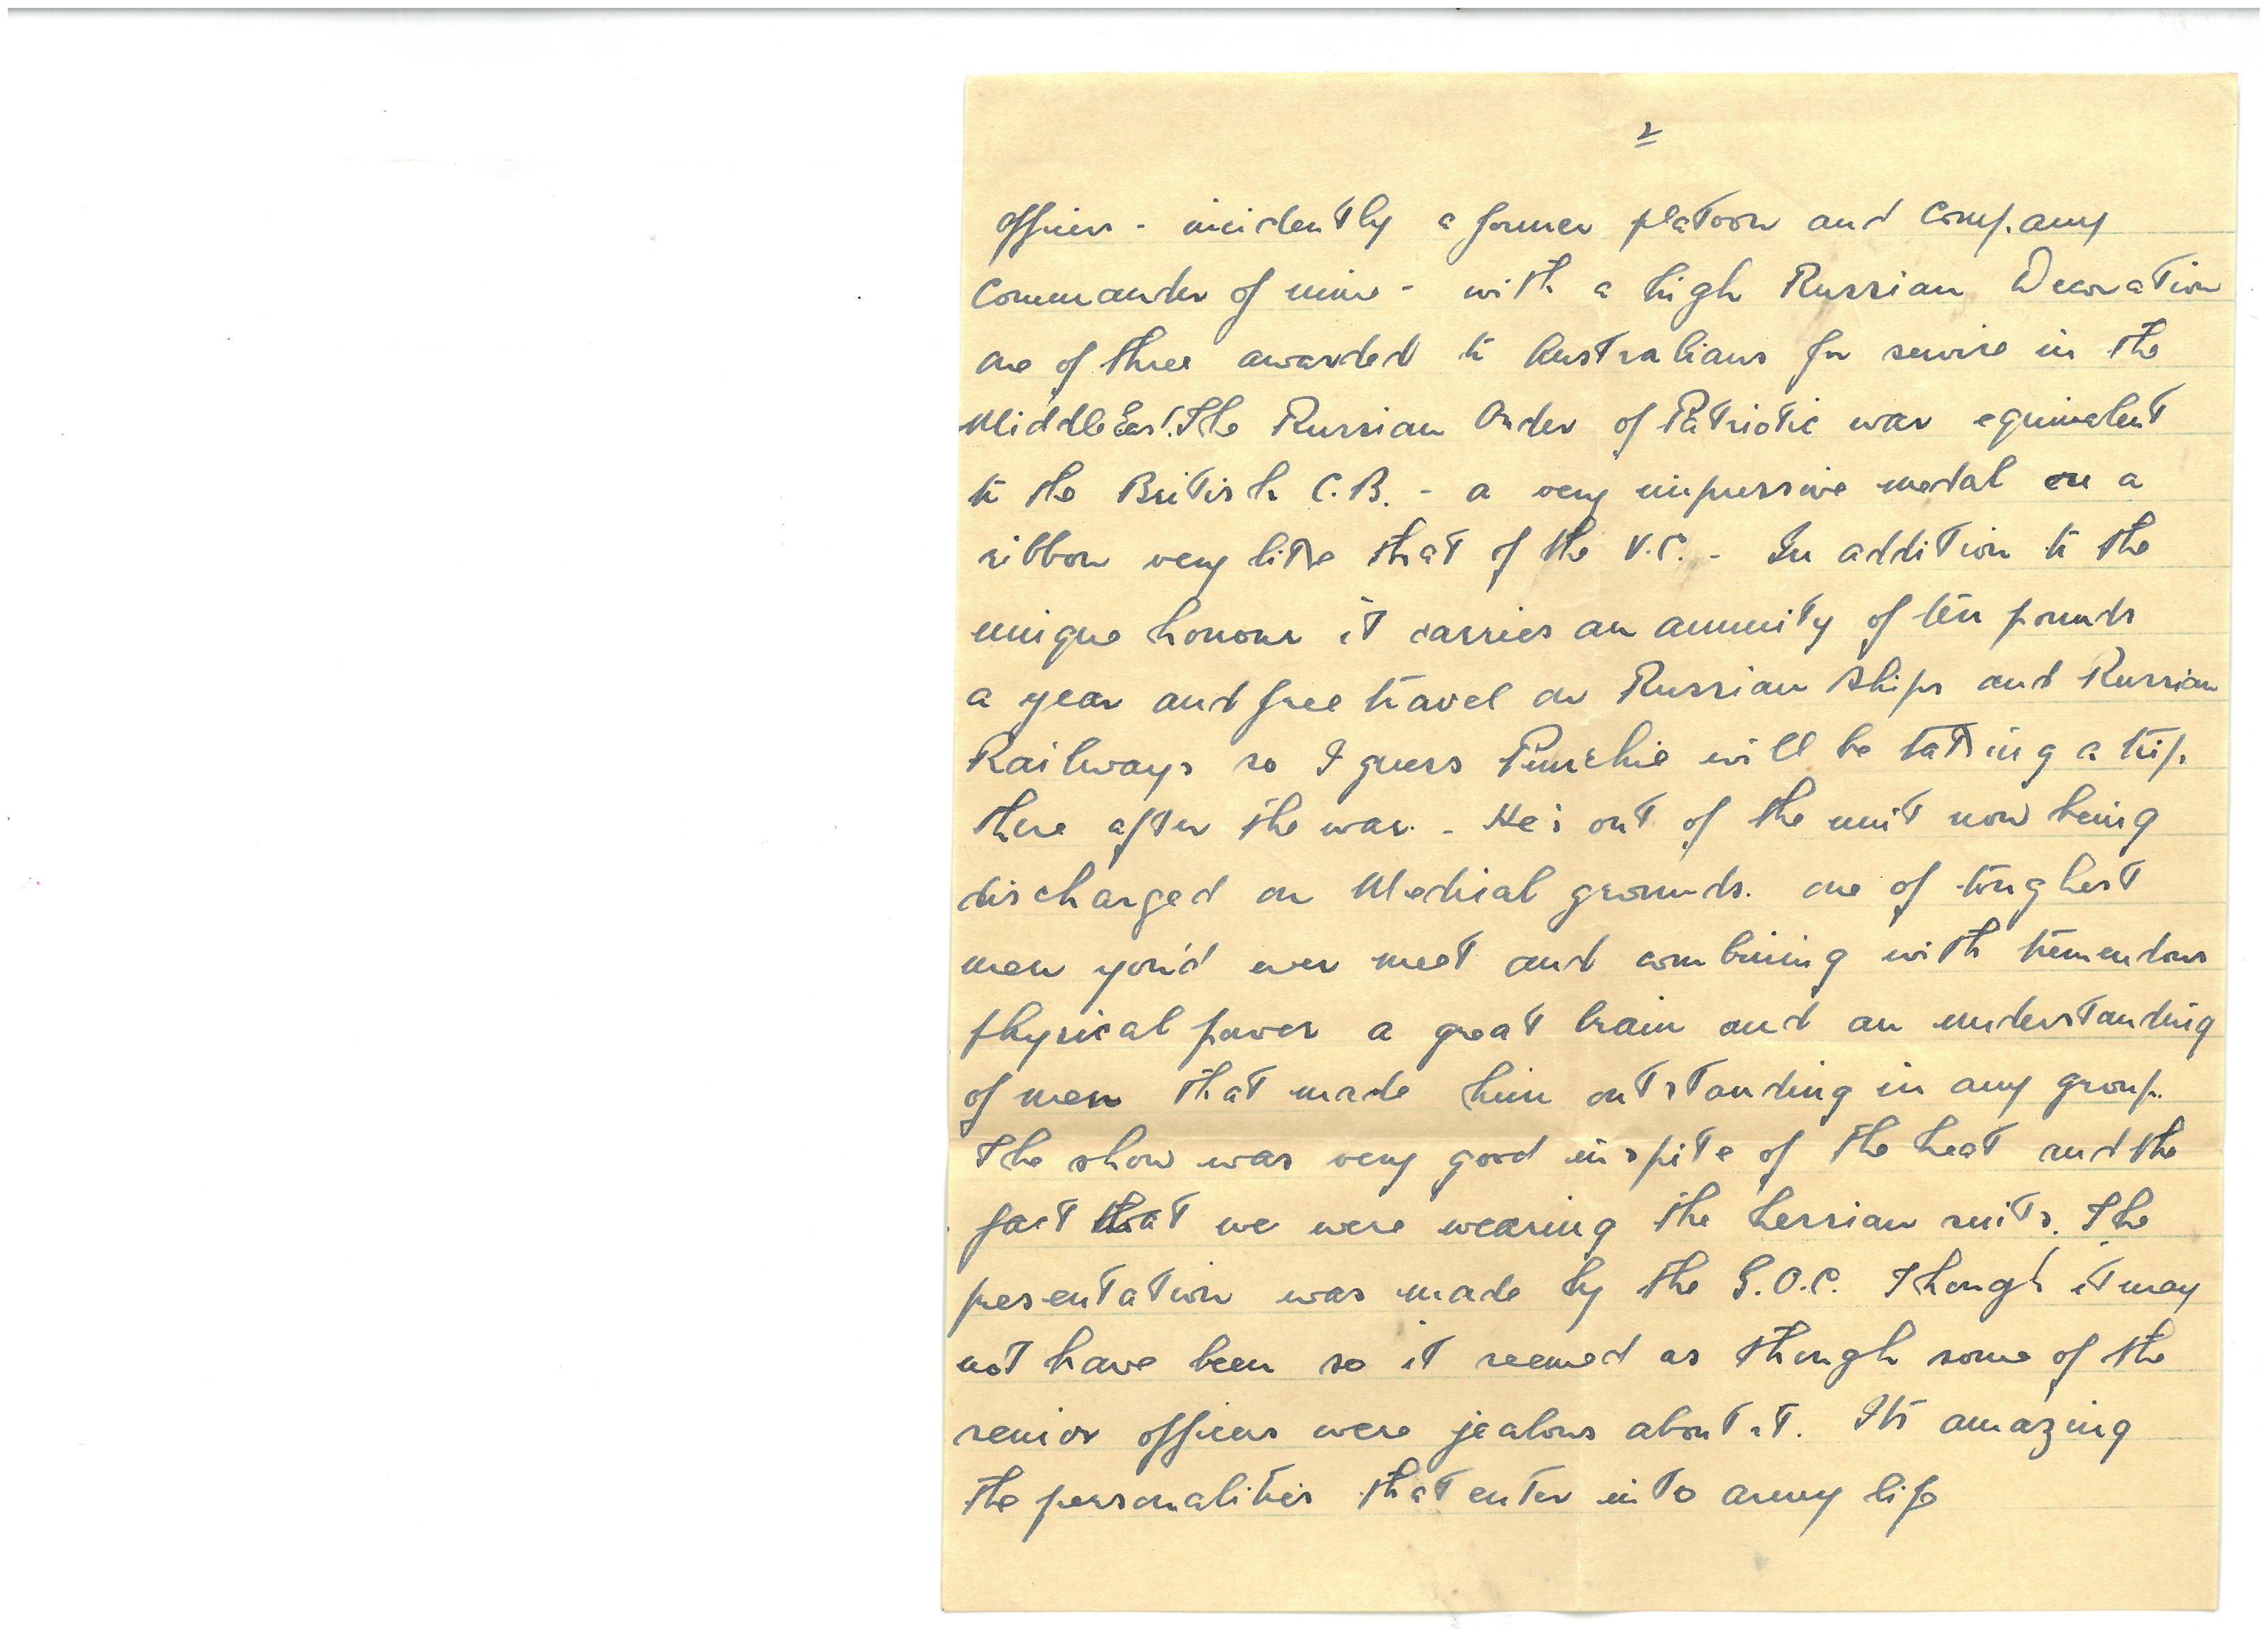 2
officer - incidently a former platoon and Company
Commander of mine - with a high Russian Decoration
one of three awarded to Australians for service in the
Middle East. The Russian Order of Patriotic war equivalent
to the British C.B. - a very impressive medal on a
ribbon very like that of the V.C. - In addition to the
unique honour it carries an annuity of ten pounds
a year and free travel on Russian Ships and Russian
Railways so I guess Punchie will be taking a trip
there after the war. - He's out of the unit now being
discharged on Medical grounds. one of toughest
men you'd ever meet and combining with tremendous
physical power a great brain and an understanding
of men that made him outstanding in any group.
The show was very good inspite of the heat and the
fact that we were wearing the hessian suits. The
presentation was made by the G.O.C. Though it may
not have been so it seemed as though some of the
senior officers were jealous about it. It's amazing
the personalities that enter into army life